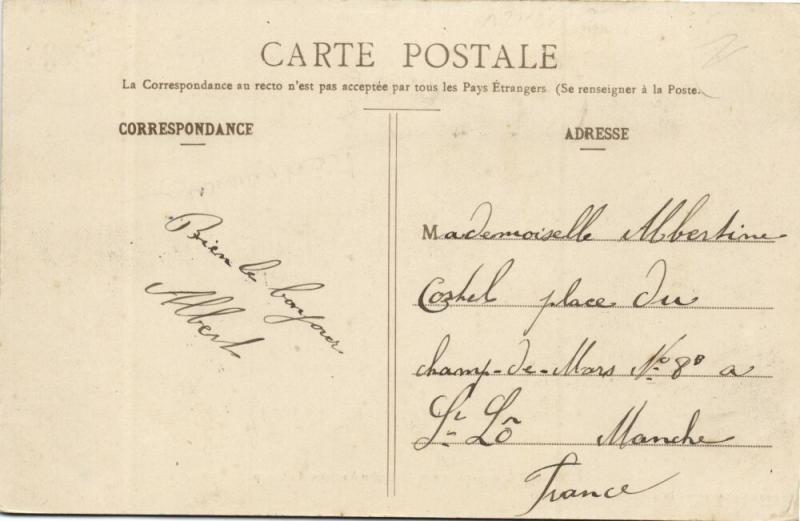 CARTE POSTALE
La Correspondance au recto n'est pas acceptée par tous les Pays Étrangers (Se renseigner à la Poste.
CORRESPONDANCE
Bien le bonjour
Albert
ADRESSE
Mademoiselle Albertine
place du
champ-de-Mars No 8 a
St Lô Manche
France